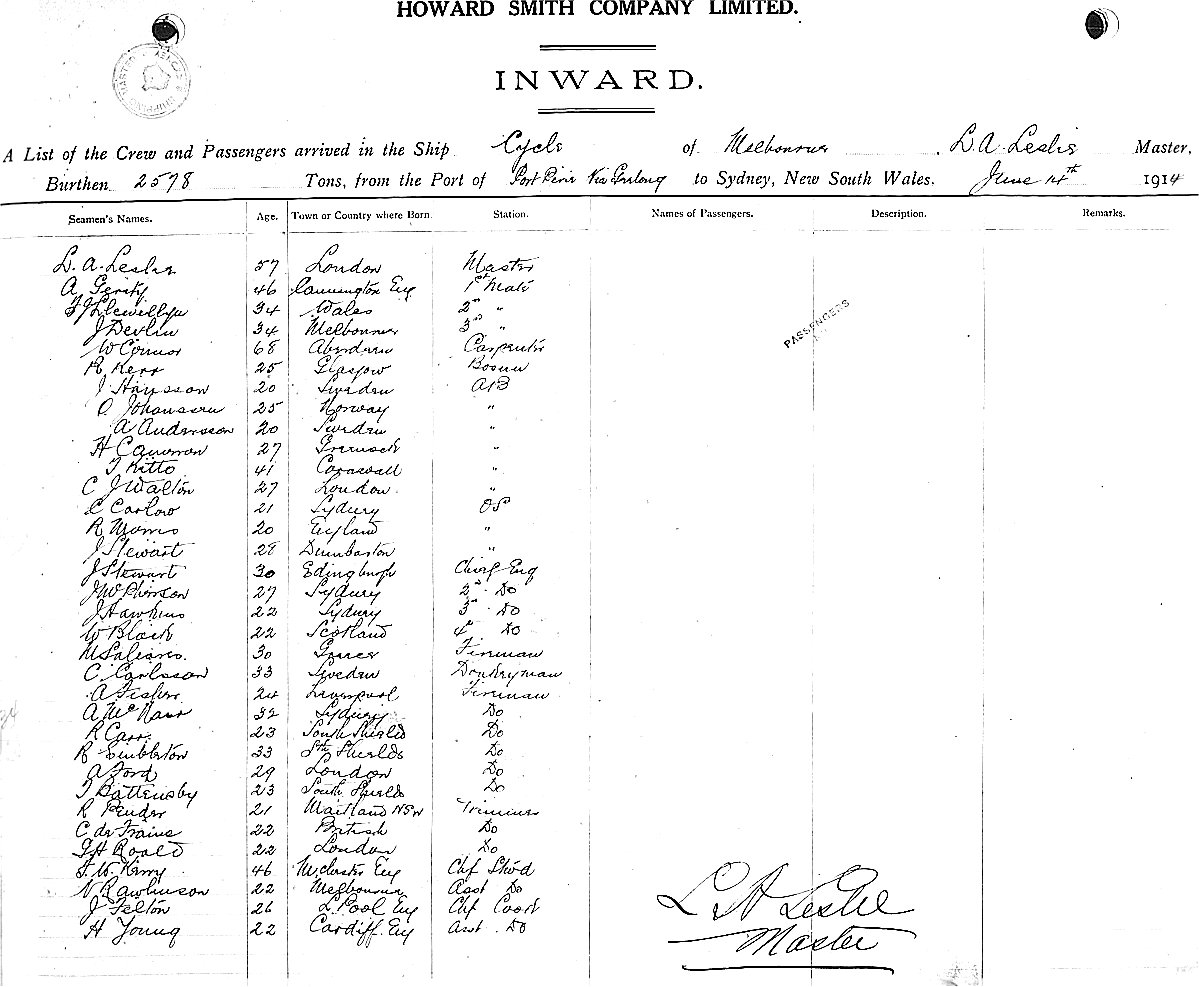 HOWARD SMITH COMPANY LIMITED.
INWARD.
A List of the Crew and Passengers arrived in the Ship Cycle of Melbourne L. A. Leslie Master,
Burthen 2578 Tons, from the Port of Port Pirie Via Geelong to Sydney, New South Wales. June 14th 1914
Seamen's Names. Age. Town or Country where Born. Station. Names of Passengers. Description. Remarks.
PASSENGERS
L. A. Leslie 57 London Master
A 46 Cannington Eng 1st Mate
Llewellyn 34 Wales 2nd "
J Devlin 34 Melbourne 3rd "
W Connor 68 Aberdeen Carpenter
R Kerr 25 Glasgow Bosun
J Hansson 20 Sweden AB
O Johansen 25 Norway "
A Andersson 20 Sweden "
H Cameron 27 Greenock "
T Kitto 41 Cornwall "
C J Walton 27 London "
C Carlow 21 Sydney OS
R Morris 20 England "
J Stewart 28 Dumbarton "
J Stewart 30 Edingburgh Chief Eng
J McPherson 27 Sydney 2nd Do
J Hawkins 22 Sydney 3rd Do
W Black 22 Scotland 4th Do
M 30 Greece Fireman
C. Carlsson 33 Sweden Donkeyman
A Fisher 24 Liverpool Fireman
A Mc 32 Sydney Do
R Carr 23 South Shields Do
R 33 Sth Shields Do
A Ford 29 London Do
T Battensby 23 South Shields Do
R Pender 21 Maitland NSW Trimmer
C de Fraine 22 British Do
Roald 22 London Do
46 M.chester Eng Chf Stwd
N Rawlinson 22 Melbourne Asst Do
J Felton 26 L.Pool Eng Chf Cook
H Young 22 Cardiff. Eng Asst Do
L A Leslie
Master